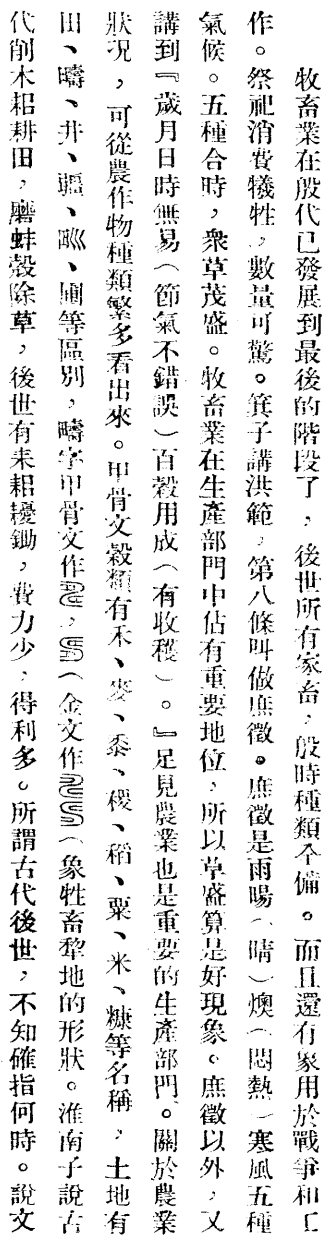 牧畜業在殷代已發展到最後的階段了，後世所有家畜，殷時種類全備。而且還有象用於戰爭和工
作。祭祀消費犧牲，數量可驚。箕子講洪範，第八條叫做庶徵。庶徵是雨暘（晴）燠（悶熱）寒風五種
氣候。五種合時，衆草茂盛。牧畜業在生產部門中佔有重要地位，所以草盛算是好現象。庶徵以外，又
講到『歲月日時無易（節氣不錯誤）百穀用成（有收穫）。』足見農業也是重要的生產部門。關於農業
狀况，可從農作物種類繁多看出來。甲骨文穀類有禾、麥、黍、稷、稻、粟、米、糠等名稱，土地有
田、疇、井、疆、甽、圃等區別，疇字甲骨文作，（金文作）象牲畜犂地的形狀。淮南子說古
代削木耜耕田，磨蚌殼除草，後世有耒耜耰鋤，費力少，得利多。所謂古代後世，不知確指何時。說文